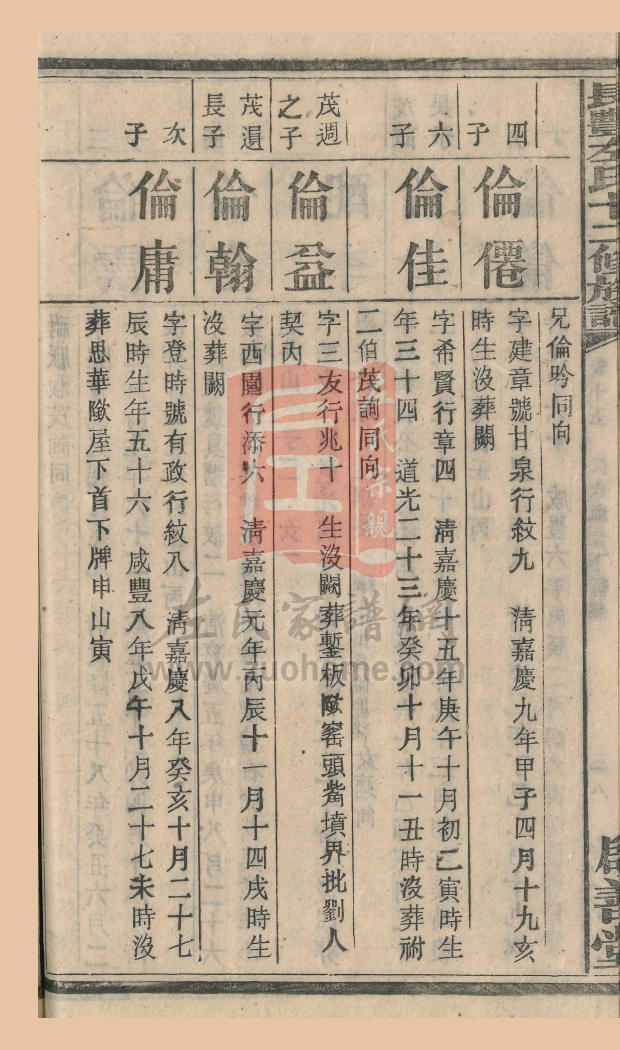 長豐左氏十二修族譜
啟善堂
兄倫昑同向
四子
倫僊
字建章號甘泉行紋九 清嘉慶九年甲子四月十九亥
時生沒葬闕
六子
倫佳
字希賢行章四 清嘉慶十五年庚午十月初二寅時生
年三十四 道光二十三年癸卯十月十一丑時沒葬祔
二伯茂詢同向
茂週之子
倫益
字三友行兆十 生沒闕葬鏨板㙜窰頭嘴墳界批劉人
契內
茂遺長子
倫翰
字西園行添六 清嘉慶元年丙辰十一月十四戌時生
沒葬闕
次子
倫庸
字登時號有政行紋八 清嘉慶八年癸亥十月二十七
辰時生年五十六 咸豐八年戊午十月二十七未時沒
葬思華㙜屋下首下牌申山寅
左氏家譜網
www.zuohome.com